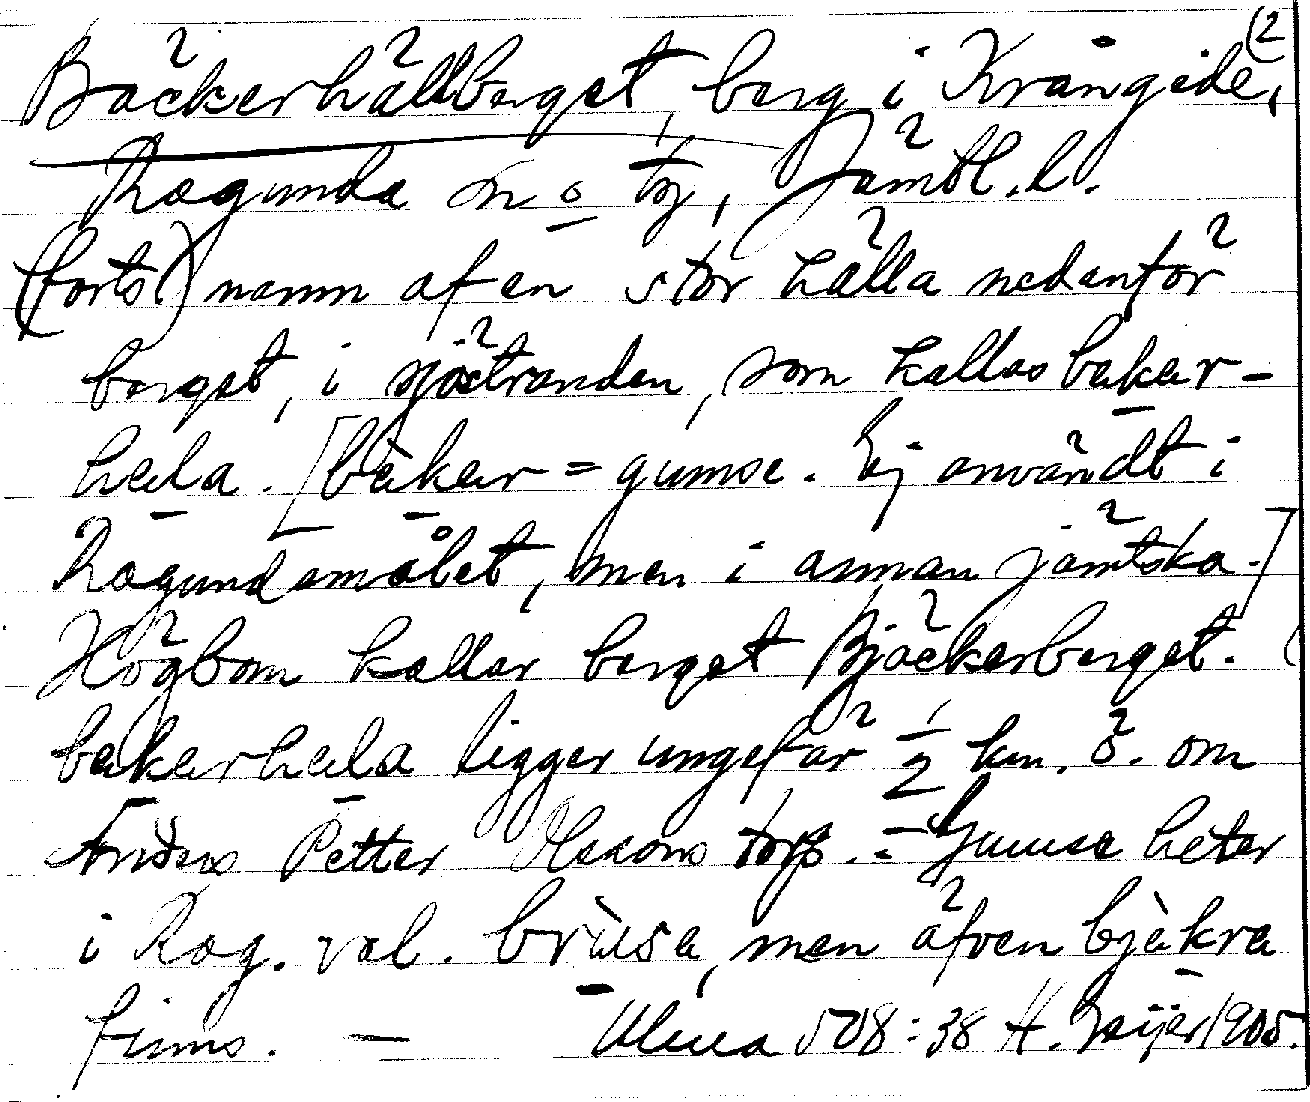 (2
Bäckerhällberget, berg i Krångede,
Ragunda sn o tg, Jämtl. l.
(forts) namn af en stor hälla nedanför
berget, i sjöstranden, som kallas bekar-
hela. [bèkar = gumse. Ej användt i
Ragundamålet, men i annan jämtska.]
Högbom kallar berget Bjäckerberget.
bekarhela ligger ungefär ½ km. ö. om
Anders Petter Olssons torp. - Gumse heter
i Rag. val. brùsa, men äfven bjèkra
finns. — Ulma 508:38 H. Geijer 1905.